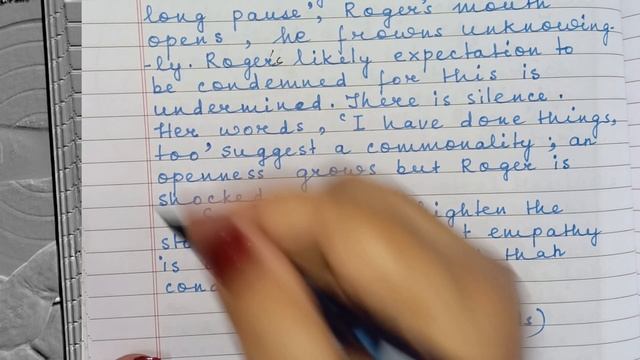 long pause', Roger's mouth
opens, he frowns unknowing-
-ly. Roger's likely expectation to
be condemned for this is
undermined. There is silence.
Her words, 'I have done things,
too' suggest a commonality; an
openness grows but Roger is
shocked
the
empathy
is than